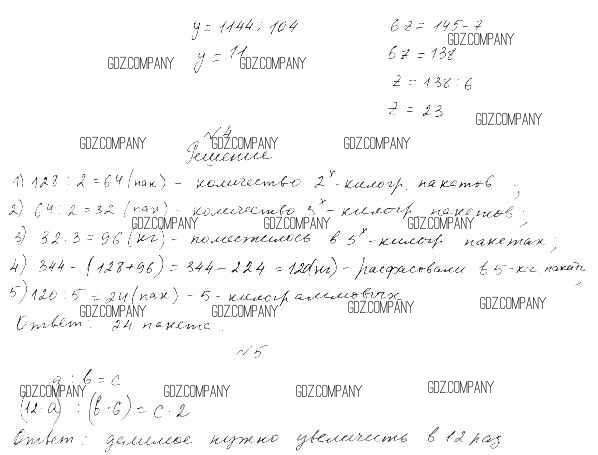 y = 1144 : 104
6z = 145 - 7
y = 11
6z = 138
z = 138 : 6
z = 23
№4
Решение
1) 128 : 2 = 64 (пак) - количество 2х-килогр. пакетов ;
2) 64 : 2 = 32 (пак) - количество 3х-килогр. пакетов ;
3) 32 · 3 = 96 (кг) - поместилось в 3х-килогр пакетах ;
4) 344 - (128+96) = 344 - 224 = 120(кг) - расфасовали в 5-кг пакеты ;
5) 120 : 5 = 24 (пак) - 5 - килограммовых
Ответ: 24 пакета.
№5
a : b = c
(12·a) : (b·6) = c·2
Ответ: делимое нужно увеличить в 12 раз
GDZ.COMPANY
GDZ.COMPANY GDZ.COMPANY
GDZ.COMPANY
GDZ.COMPANY GDZ.COMPANY GDZ.COMPANY
GDZ.COMPANY GDZ.COMPANY GDZ.COMPANY
GDZ.COMPANY GDZ.COMPANY GDZ.COMPANY GDZ.COMPANY
GDZ.COMPANY GDZ.COMPANY GDZ.COMPANY GDZ.COMPANY